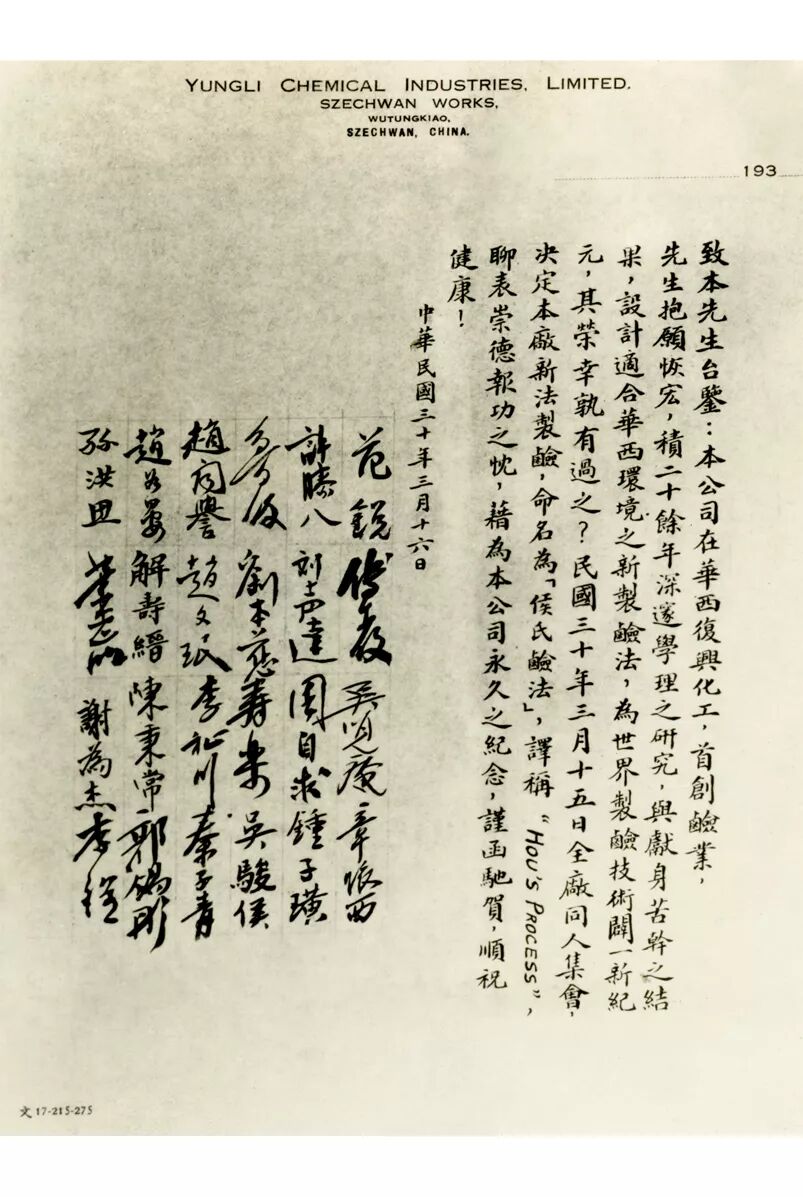 YUNGLI CHEMICAL INDUSTRIES, LIMITED.
SZECHWAN WORKS,
WUTUNGKIAO,
SZECHWAN, CHINA.
193
致本先生台鑒：本公司在華西復興化工，首創鹼業，
先生抱願恢宏，積二十餘年深邃學理之研究，與獻身苦幹之結
果，設計適合華西環境之新製鹼法，為世界製鹼技術闢一新紀
元，其榮幸孰有過之？民國三十年三月十五日全廠同人集會，
決定本廠新法製鹼，命名為「侯氏鹼法」，譯稱“HOU'S PROCESS”，
聊表崇德報功之忱，藉為本公司永久之紀念，謹函馳賀，順祝
健康！
中華民國三十年三月十六日
范銳 章懷西
許滕八 劉声達 周自求 鍾子璜
劉本慈 壽樂 吳駿侯
趙同譽 趙文珉 李祉川 秦子青
解壽縉 陳秉常 郭錫彤
孫洪 謝為杰 李
文 17-215-275